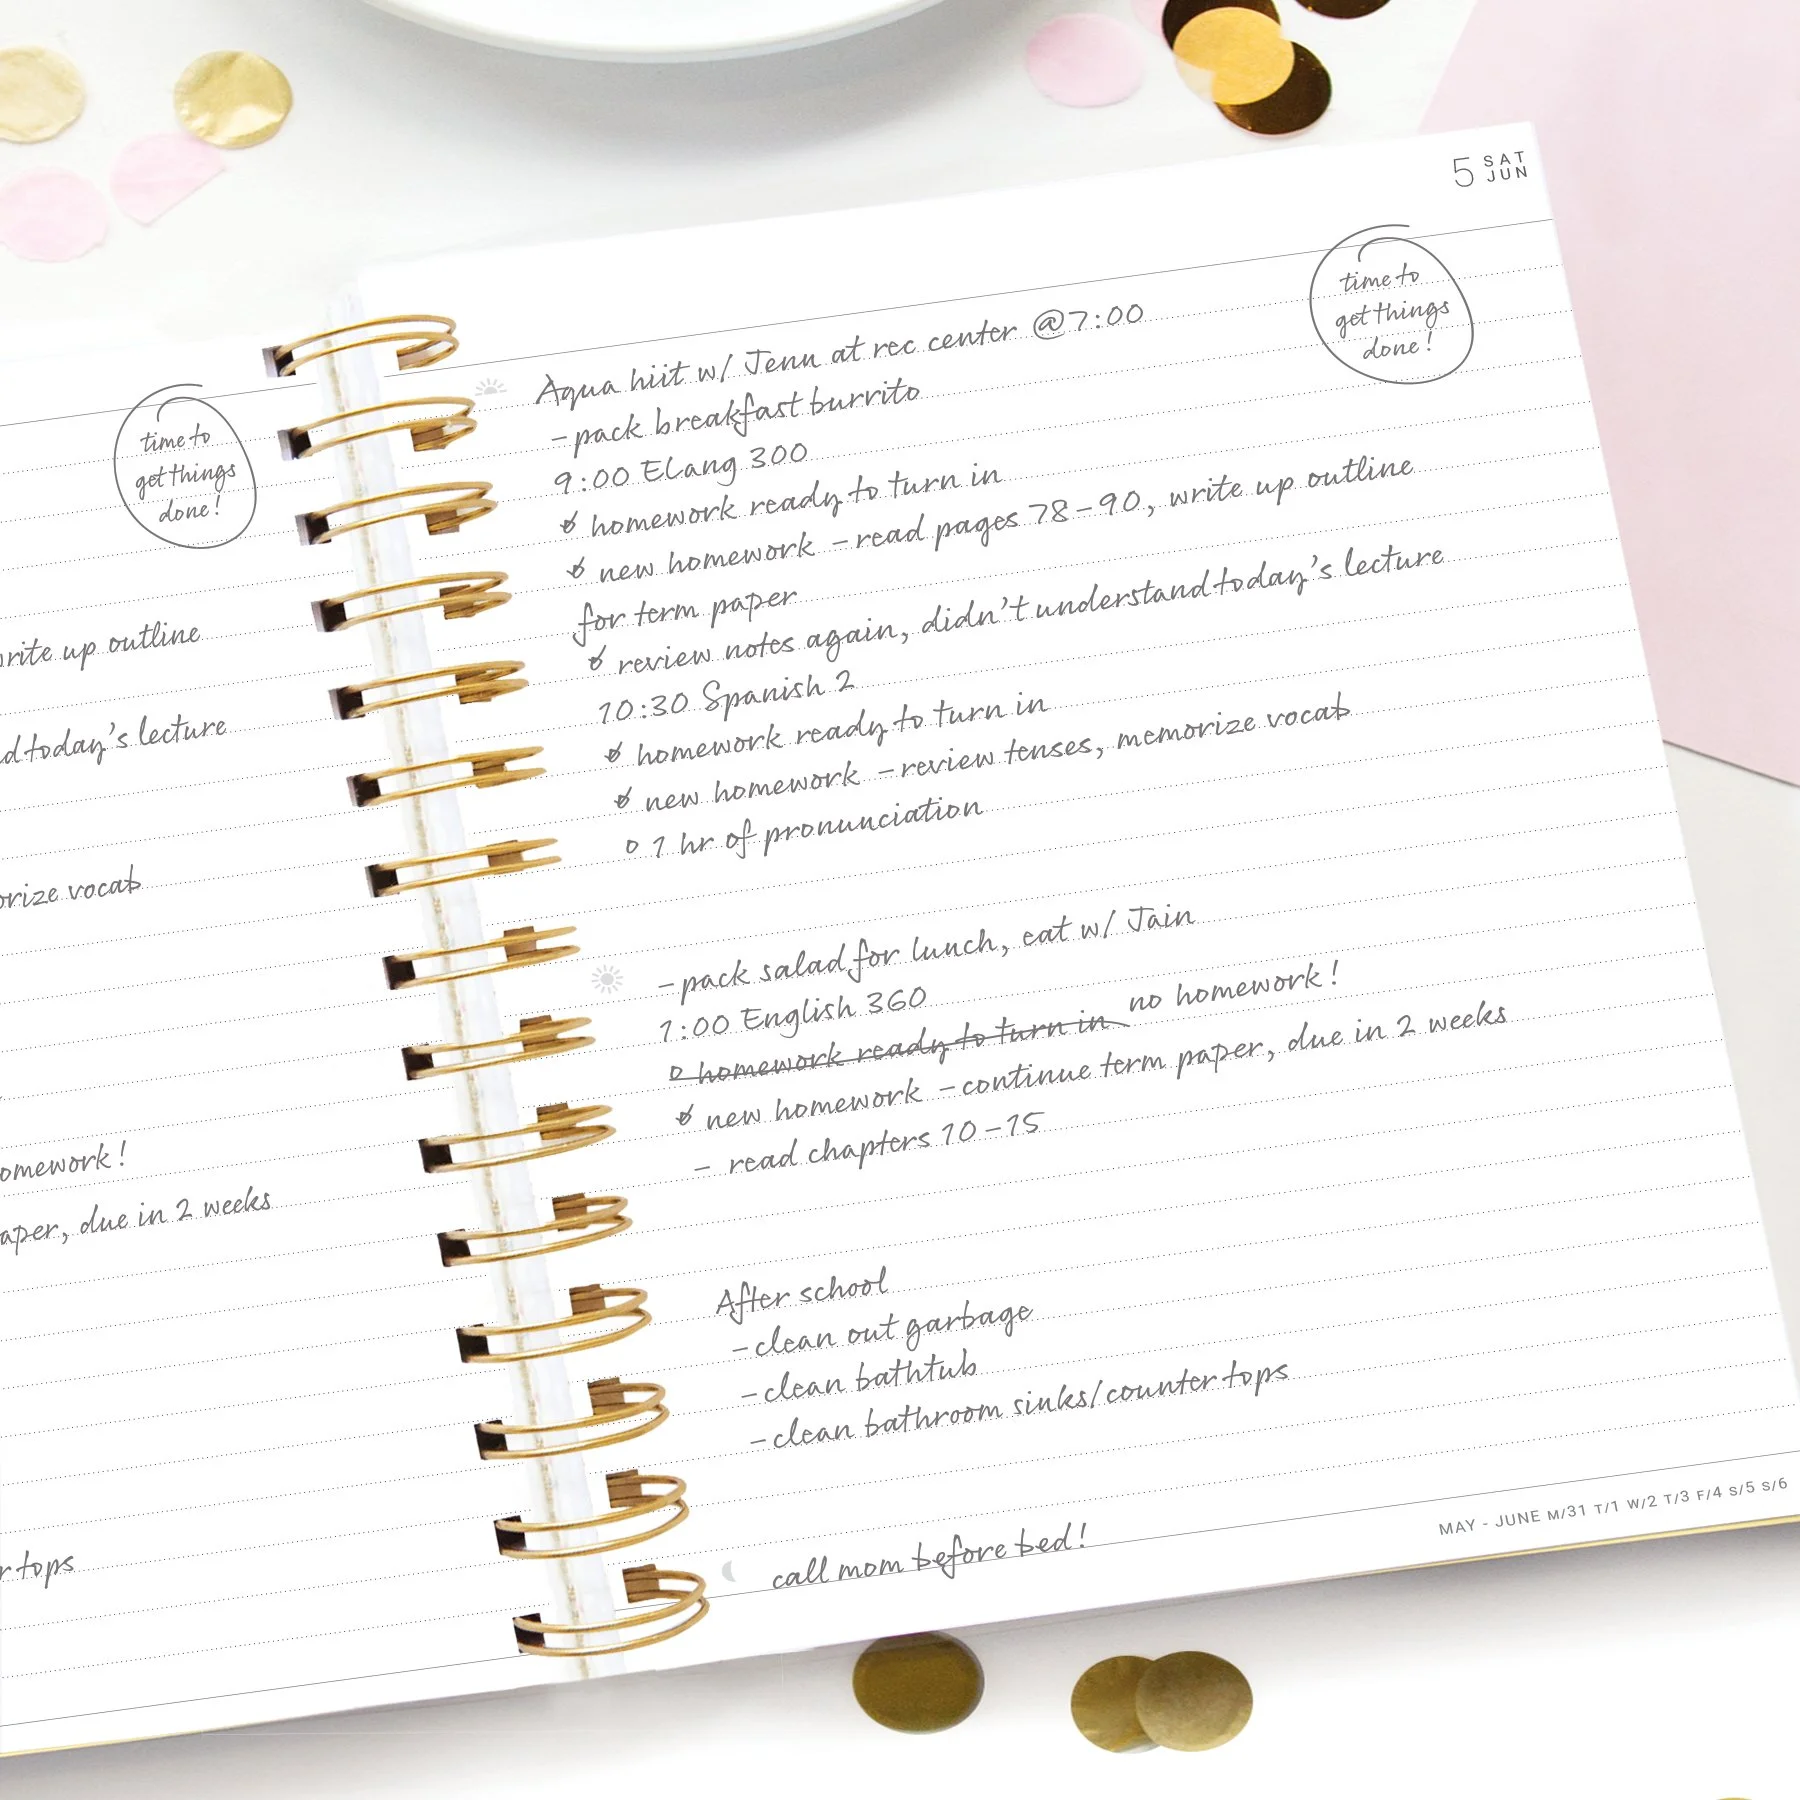 time to
get things
done!
write up outline
today's lecture
vocab
homework!
paper, due in 2 weeks
tops
5 SAT
JUN
time to
get things
done!
Aqua hiit w/ Jenn at rec center @7:00
-pack breakfast burrito
9:00 ELang 300
homework ready to turn in
new homework - read pages 78-90, write up outline
for term paper
review notes again, didn't understand today's lecture
10:30 Spanish 2
homework ready to turn in
new homework - review tenses, memorize vocab
1 hr of pronunciation
-pack salad for lunch, eat w/ Jain
1:00 English 360
homework ready to turn in no homework!
new homework - continue term paper, due in 2 weeks
- read chapters 10-15
After school
-clean out garbage
-clean bathtub
-clean bathroom sinks/counter tops
call mom before bed!
MAY - JUNE M/31 T/1 W/2 T/3 F/4 S/5 S/6